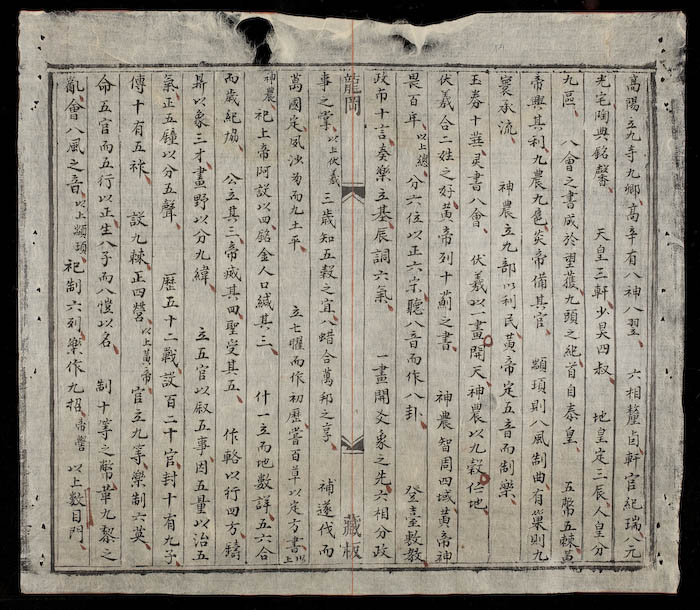 高陽立九寺九鄉高辛有八神八翌 六相釐軒官紀瑞八元
光宅陶典銘 天皇三軒少昊四叔 地皇定三辰人皇分
九區 八會之書成於望獲九頭之紀首自泰皇 五幣五棘黃
帝興其利九農九扈炎帝備其官 顓頊則八風制曲有巢則九
寰承流 神農立九部以利民黃帝定五音而制樂
玉券十華灵書八會 伏羲以一畫開天神農以九穀仁地
伏羲合二姓之好黃帝列十之書 神農智周四域黃帝神
畏百年 以上總 分六位以正六宗聽八音而作八卦 登敷教
政市十言奏樂立基辰詞六氣 一畫開爻象之先六相分政
龍岡 藏板
事之掌 以上伏羲 三歲知五穀之宜八蜡合萬邦之享 補遂伐而
萬國定夙沙而九土平 立七曜而作初歷嘗百草以定方書 以上
神農 祀上帝阿設以四銘金人口緘其三 什一立而地數詳五六合
而歲紀協 公立其三帝臧其四聖受其五 作輅以行四方鑄
鼎以象三才畫野以分九緯 立五官以叙五事因五量以治五
氣正五鐘以分五聲 歷五十二戰設百二十官封十有九子
傳十有五 設九棘正四營 以上黃帝 官立九等樂制六英
命五官而五行以正生八子而八愷以名 制十等之幣革九黎之
亂會八風之音 以上顓頊 祀制六列樂作九招 帝嚳 以上數目門